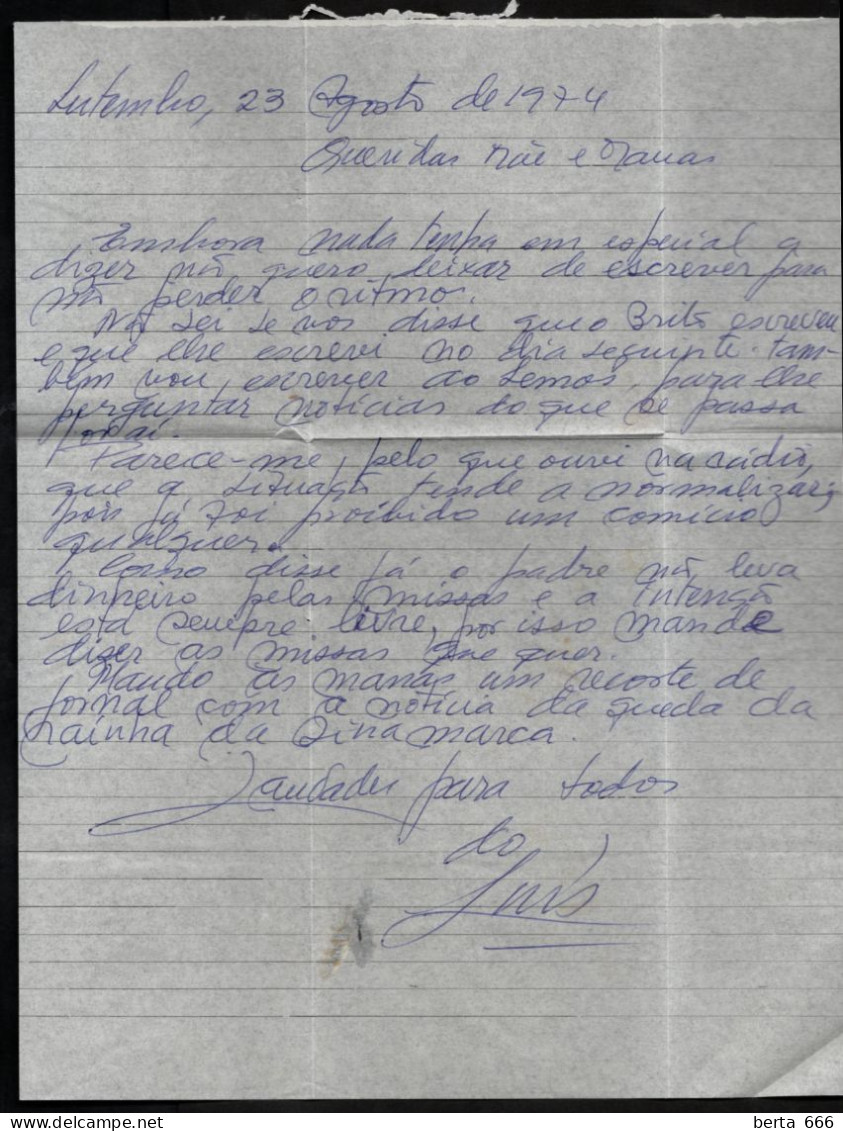 Lutembo, 23 Agosto de 1974
Queridas Mãe e Manas
Embora nada tenha em especial a
dizer não quero deixar de escrever para
não perder o ritmo.
Não sei se vos disse que o Brito escreveu
e que lhe escrevi no dia seguinte. Tam-
bém vou escrever ao Lemos, para lhe
perguntar notícias do que se passa
por aí.
Parece-me, pelo que ouvi na rádio,
que a situação tende a normalizar;
pois já foi proibido um comício
qualquer.
Como disse já o padre não leva
dinheiro pelas missas e a intenção
está sempre livre, por isso mande
dizer as missas que quer.
Mando às manas um recorte de
jornal com a notícia da queda da
rainha da Dinamarca.
Saudades para todos
do
Luís
berta 666